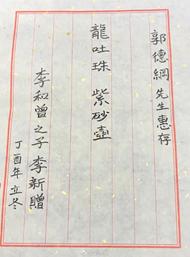 郭德綱先生惠存
龍吐珠 紫砂壺
李和曾之子李新贈
丁酉年立冬